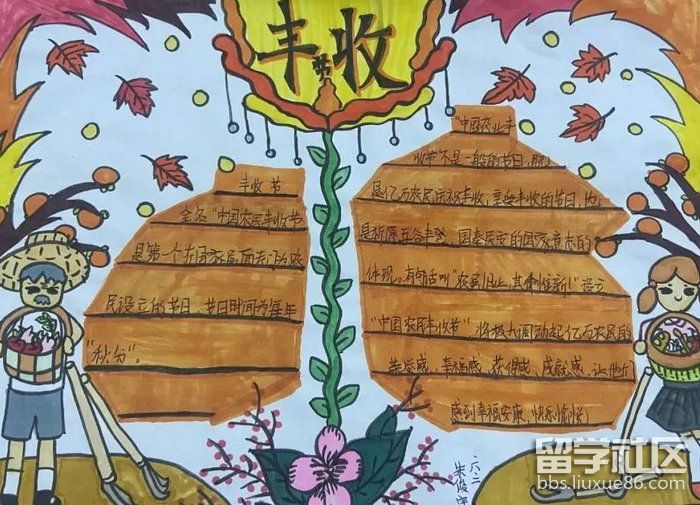 丰收
节
丰收节
全名"中国农民丰收节"
是第一个在国家层面专门为农
民设立的节日，节日时间为每年
"秋分"。
"中国农业丰
收节"不是一般的节日，
是亿万农民庆祝丰收、享受丰收的节日，也
是祈愿五谷丰登、国泰民安的国家意志的
体现。有句话叫"农虽旧业，其命维新！"设立
"中国农民丰收节"将极大调动起亿万农民的
荣誉感、幸福感、获得感、成就感，让他们
感到幸福安康、快乐愉悦！
六.二
朱俊
留学社区
bbs.liuxue86.com